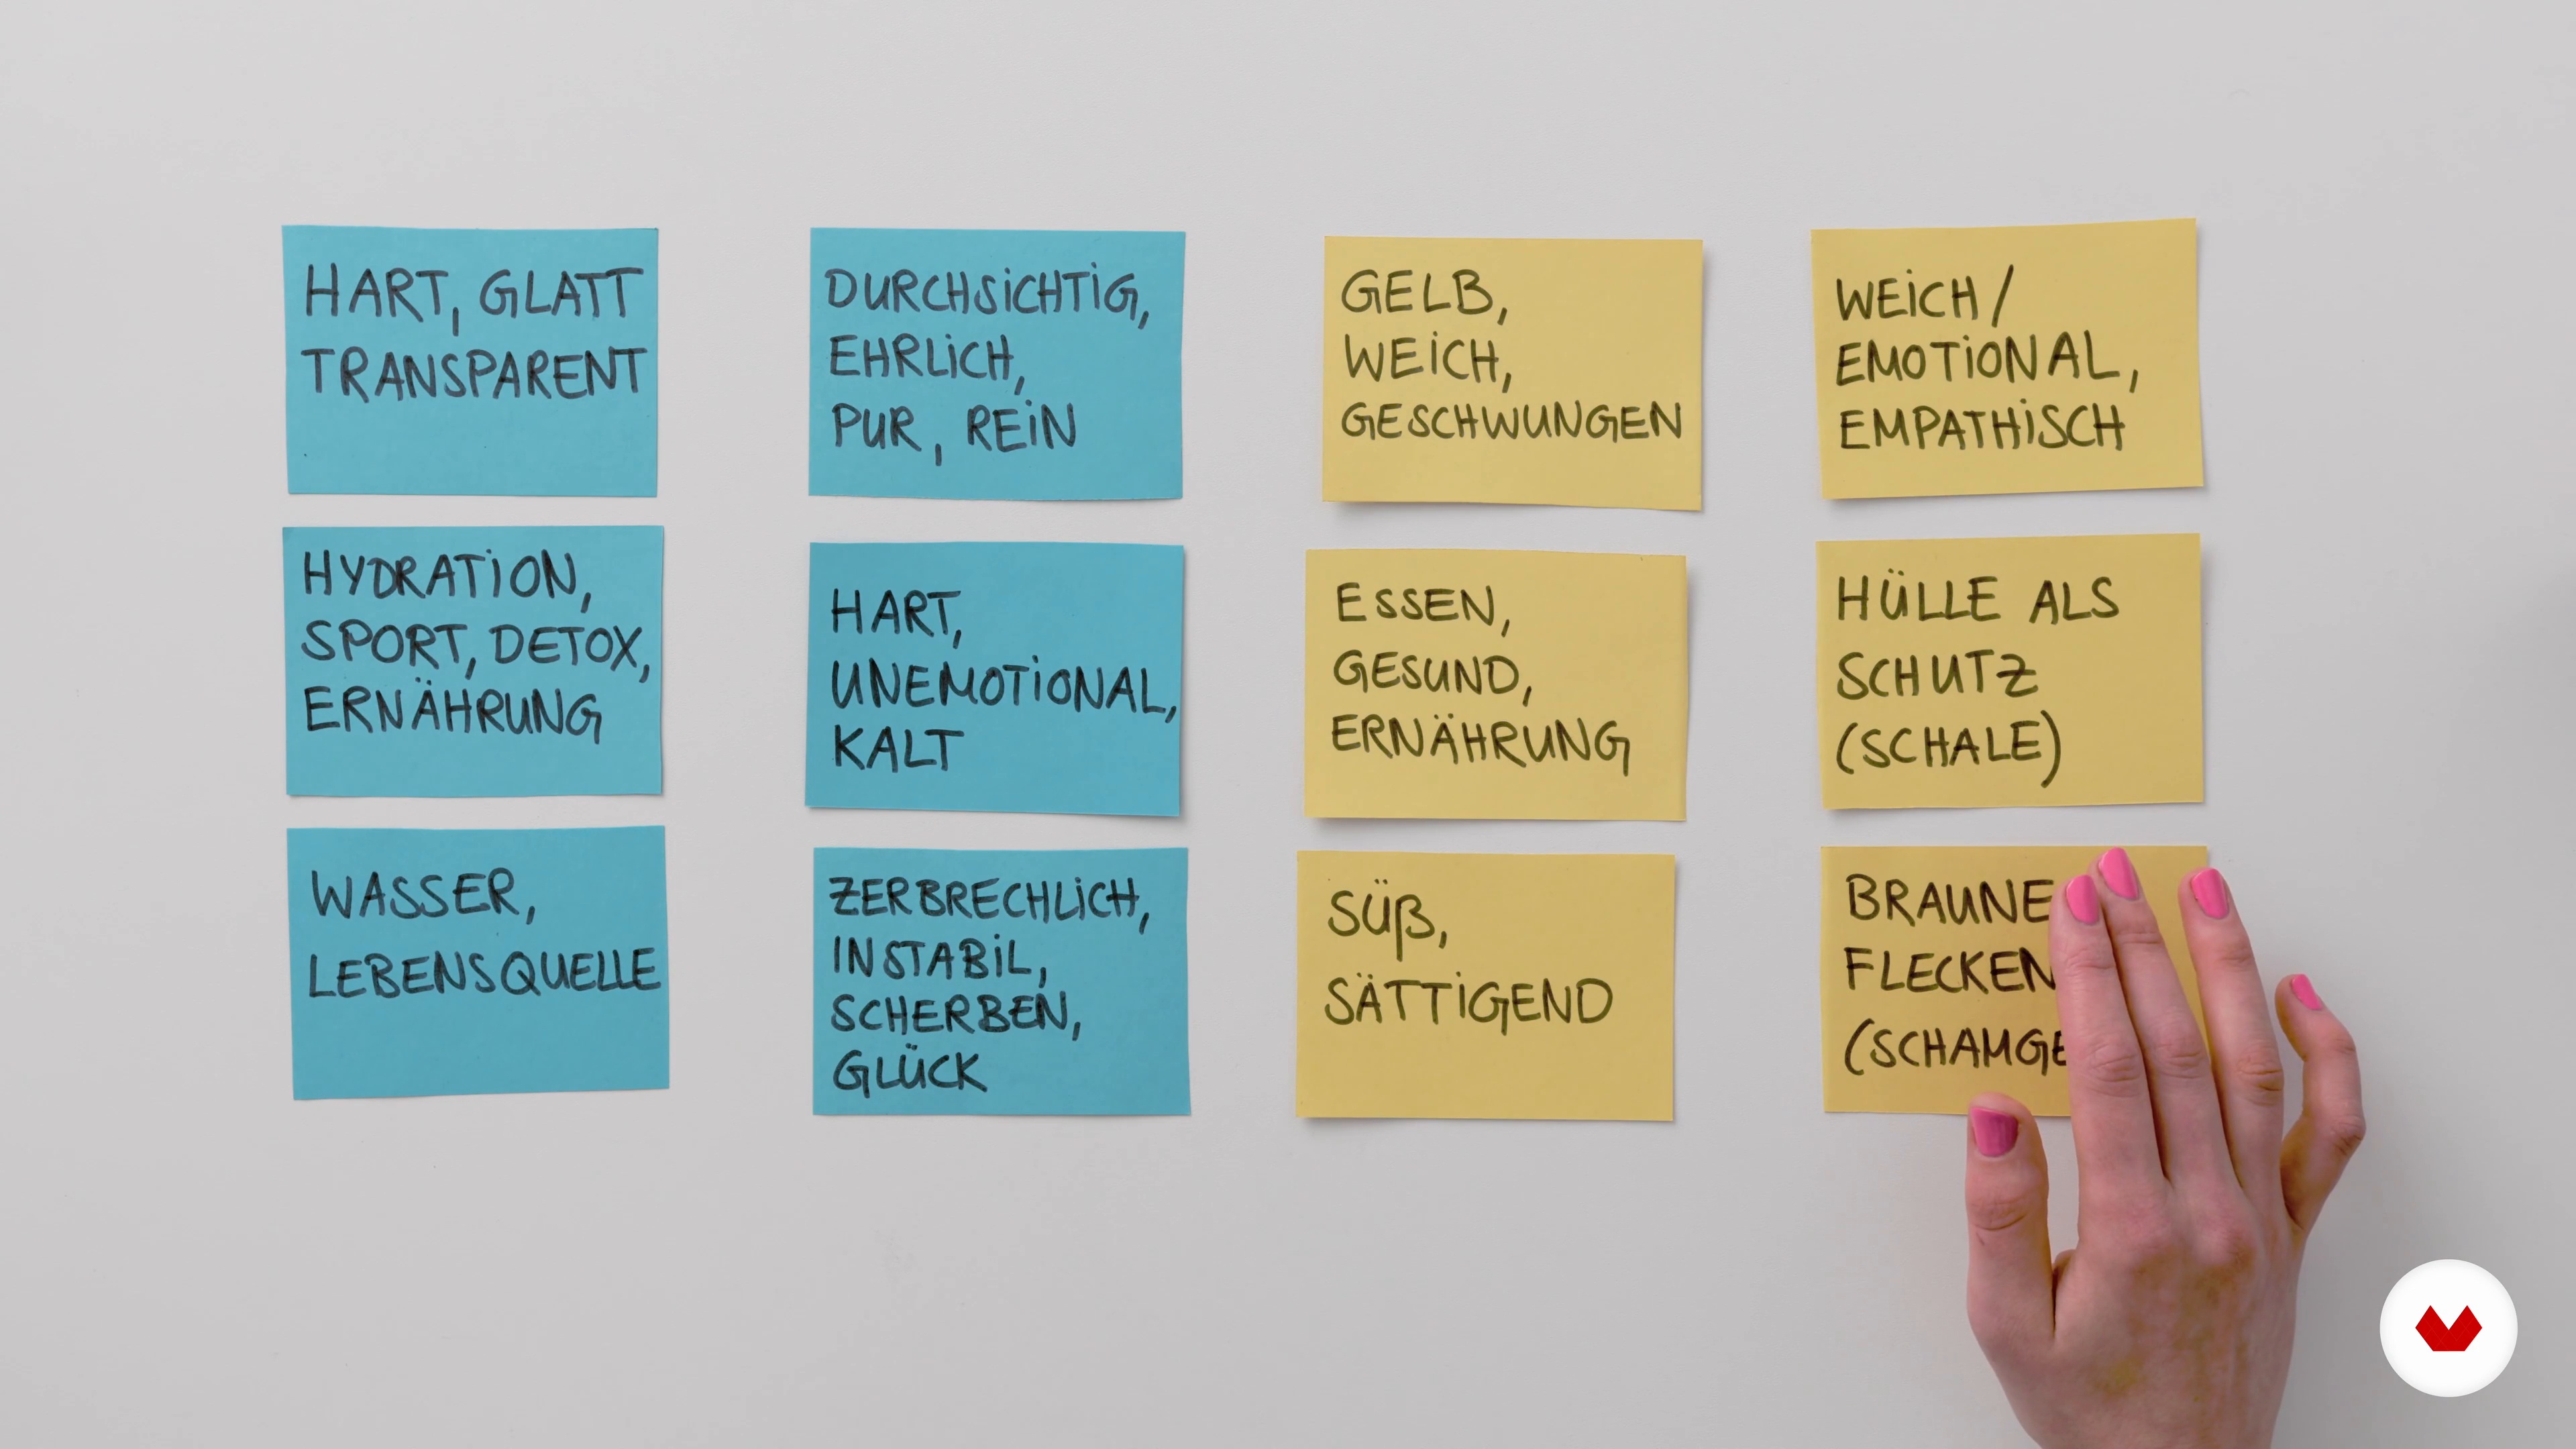 HART, GLATT
TRANSPARENT
DURCHSICHTIG,
EHRLICH,
PUR, REIN
GELB,
WEICH,
GESCHWUNGEN
WEICH/
EMOTIONAL,
EMPATHISCH
HYDRATION,
SPORT, DETOX,
ERNÄHRUNG
HART,
UNEMOTIONAL,
KALT
ESSEN,
GESUND,
ERNÄHRUNG
HÜLLE ALS
SCHUTZ
(SCHALE)
WASSER,
LEBENSQUELLE
ZERBRECHLICH,
INSTABIL,
SCHERBEN,
GLÜCK
SÜß,
SÄTTIGEND
BRAUNE
FLECKEN